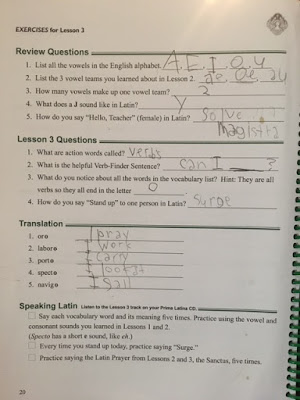 EXERCISES for Lesson 3
Review Questions
1. List all the vowels in the English alphabet. A, E, I, O, U
2. List the 3 vowel teams you learned about in Lesson 2. ae oe au
3. How many vowels make up one vowel team? 2
4. What does a J sound like in Latin? y
5. How do you say "Hello, Teacher" (female) in Latin? Solve
Magistra
Lesson 3 Questions
1. What are action words called? verbs
2. What is the helpful Verb-Finder Sentence? can I ?
3. What do you notice about all the words in the vocabulary list? Hint: They are all
verbs so they all end in the letter O
4. How do you say "Stand up" to one person in Latin? Surge
Translation
1. oro I pray
2. laboro I work
3. porto I carry
4. specto I look at
5. navigo I Sail
Speaking Latin Listen to the Lesson 3 track on your Prima Latina CD.
Say each vocabulary word and its meaning five times. Practice using the vowel and
consonant sounds you learned in Lessons 1 and 2.
(Specto has a short e sound, like eh.)
Every time you stand up today, practice saying "Surge."
Practice saying the Latin Prayer from Lessons 2 and 3, the Sanctus, five times.
20